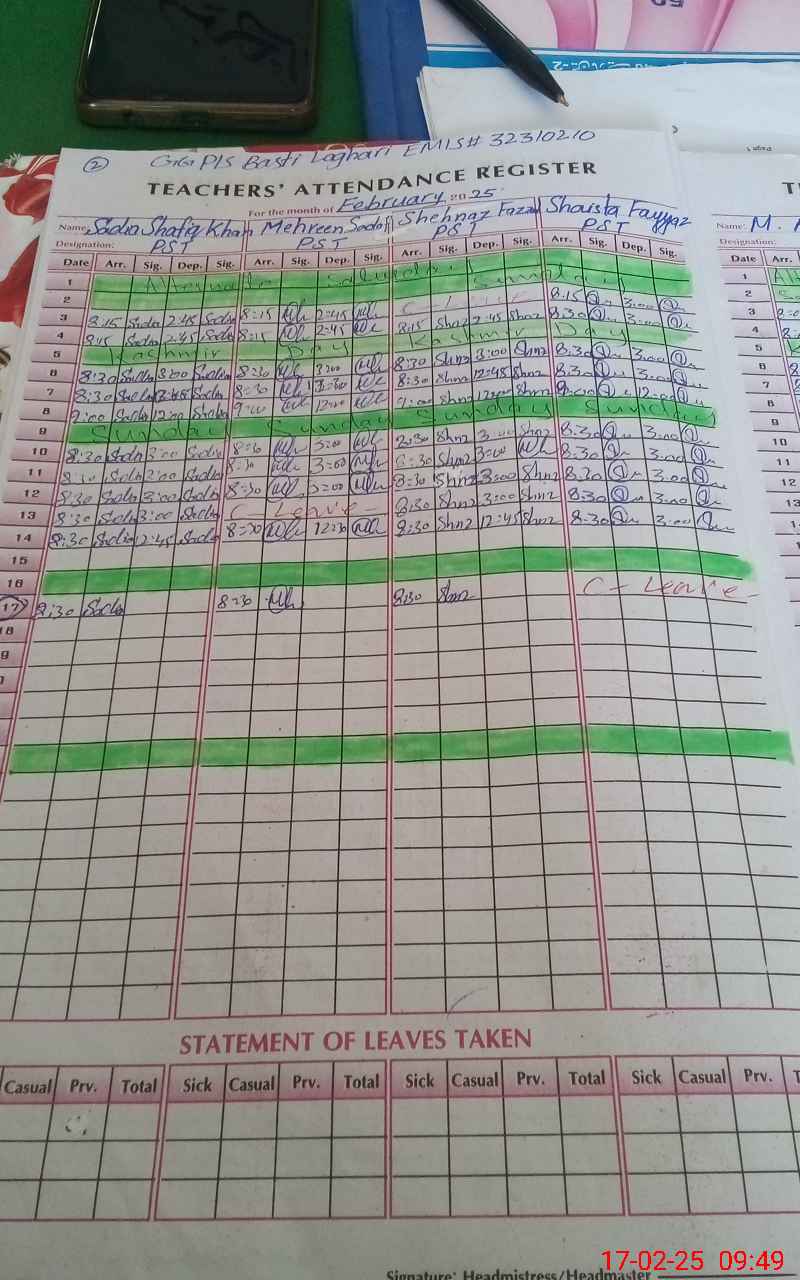 ② GGPLS Basti Laghari EMIS# 32310210
TEACHERS' ATTENDANCE REGISTER
For the month of February 2025
Name: Sadia Shafiq Khan Mehreen Sadaf Shehnaz Fazal Shaista Fayyaz
Designation: PST PST PST PST
Date Arr. Sig. Dep. Sig. Arr. Sig. Dep. Sig. Arr. Sig. Dep. Sig. Arr. Sig. Dep. Sig.
1 Alternate Saturday
2 Sunday
3 8:15 Sadia 2:45 Sadia 8:15 2:45 C-Leave 8:15 3:00
4 8:15 Sadia 2:45 Sadia 8:15 2:45 8:15 Shnz 2:45 Shnz 3:00
5 Kashmir Day Kashmir Day
6 8:30 Sadia 3:00 Sadia 8:30 3:00 8:30 Shnz 3:00 Shnz 8:30 3:00
7 8:30 Sadia Sadia 8:30 8:30 Shnz 12:45 Shnz 8:30 3:00
8 9:00 Sadia 12:00 Sadia 9:00 12:00 9:00 Shnz 12:00 Shnz 9:00 12:00
9 Sunday Sunday Sunday Sunday
10 8:30 Sadia 3:00 Sadia 8:30 3:00 8:30 Shnz 3:00 Shnz 8:30 3:00
11 8:30 Sadia 3:00 Sadia 8:30 3:00 8:30 Shnz 3:00 8:30 3:00
12 8:30 Sadia 3:00 Sadia 8:30 3:00 8:30 Shnz 3:00 Shnz 8:30 3:00
13 8:30 Sadia 3:00 Sadia C-Leave- 8:30 Shnz 3:00 Shnz 8:30 3:00
14 8:30 Sadia 2:45 Sadia 8:30 12:30 8:30 Shnz 12:45 Shnz 8:30 3:00
15
16
17 8:30 Sadia 8:30 8:30 Shnz C-Leave-
STATEMENT OF LEAVES TAKEN
Casual Prv. Total Sick Casual Prv. Total Sick Casual Prv. Total Sick Casual Prv.
Signature: Headmistress/Headmaster
Name: M.
Designation:
Date Arr.
1
2
3
4
5
6
7
8
9
10
11
12
13
14
17-02-25 09:49